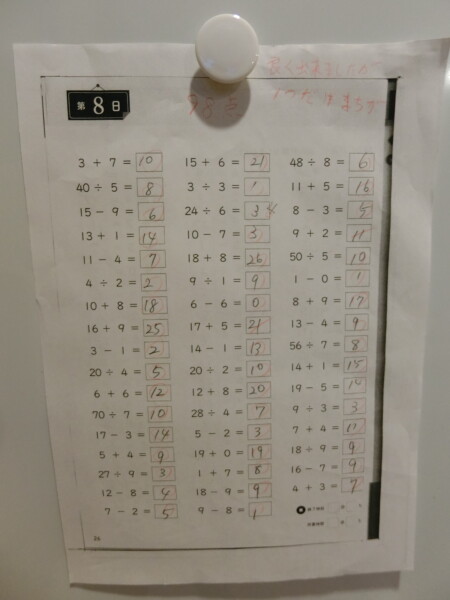 良く出来ました
98点 1つだけまちがい
第8日
3 + 7 = 10 15 + 6 = 21 48 ÷ 8 = 6
40 ÷ 5 = 8 3 ÷ 3 = 1 11 + 5 = 16
15 - 9 = 6 24 ÷ 6 = 3 4 8 - 3 = 5
13 + 1 = 14 10 - 7 = 3 9 + 2 = 11
11 - 4 = 7 18 + 8 = 26 50 ÷ 5 = 10
4 ÷ 2 = 2 9 ÷ 1 = 9 1 - 0 = 1
10 + 8 = 18 6 - 6 = 0 8 + 9 = 17
16 + 9 = 25 17 + 5 = 21 13 - 4 = 9
3 - 1 = 2 14 - 1 = 13 56 ÷ 7 = 8
20 ÷ 4 = 5 20 ÷ 2 = 10 14 + 1 = 15
6 + 6 = 12 12 + 8 = 20 19 - 5 = 14
70 ÷ 7 = 10 28 ÷ 4 = 7 9 ÷ 3 = 3
17 - 3 = 14 5 - 2 = 3 7 + 4 = 11
5 + 4 = 9 19 + 0 = 19 18 ÷ 9 = 9
27 ÷ 9 = 3 1 + 7 = 8 16 - 7 = 9
12 - 8 = 4 18 - 9 = 9 4 + 3 = 7
7 - 2 = 5 9 - 8 = 1
26